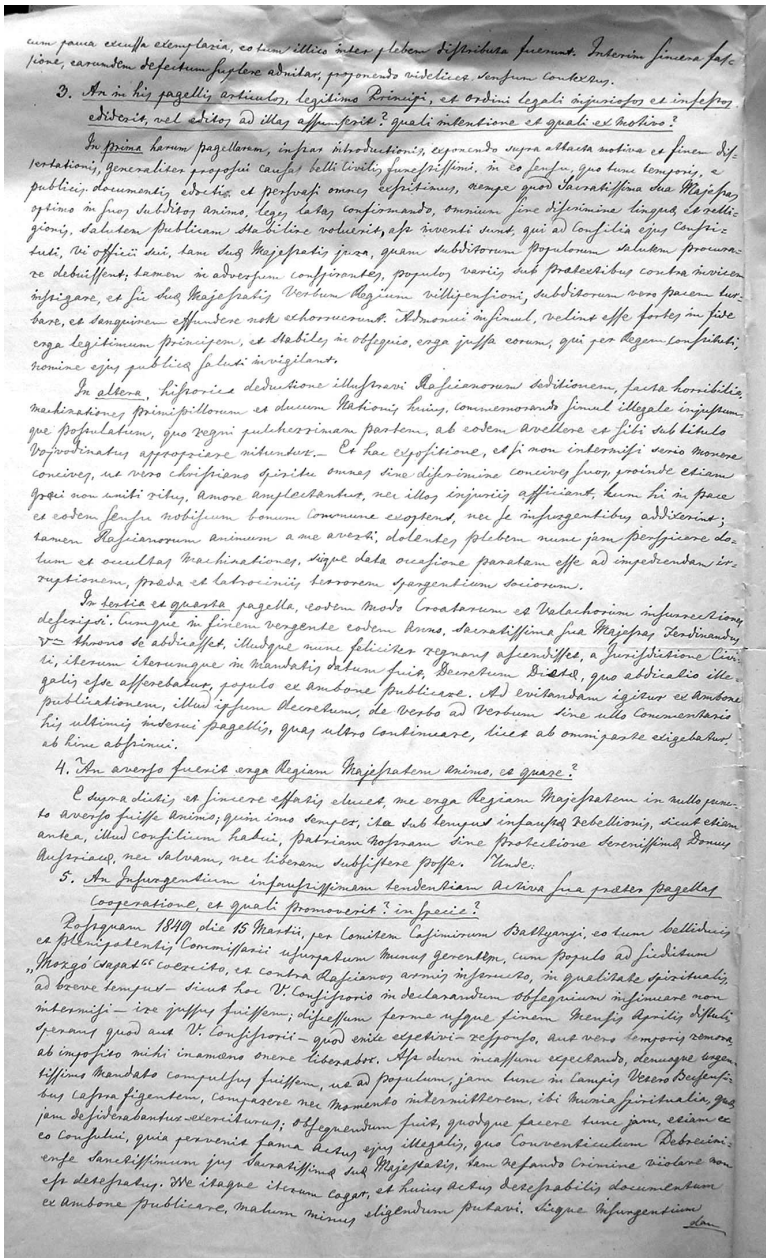 cum pauca excussa exemplaria, eo tum illico inter plebem distributa fuerunt. Interim sincera fas-
sione, earundem defectum suplere adnitar, proponendo videlicet sensum contextus.
3. An in his pagellis articulos, legitimo Principi, et ordini legali injuriosos et infestos
ediderit, vel editos ad illas assumserit? quali intentione et quali ex motivo?
In prima harum pagellarum, instar introductionis, exponendo supra attacta motiva et finem dis-
sertationis, generaliter proposui causas belli civilis funestissimi, in eo sensu, quo tunc temporis, e
publicis documentis edocti et persvasi omnes exstitimus, nempe quod Sacratissima Sua Majestas
optimo in suos subditos animo, leges latas confirmando, omnium sine discrimine linguæ et relli-
gionis, salutem publicam stabilire voluerit, ast inventi sunt, qui ad Consilia ejus consti-
tuti, vi officii sui, tam suæ Majestatis jura, quam subditorum populorum salutem procura-
re debuissent; tamen in adversum conspirantes, populos variis sub prætextibus contra invicem
instigare, et sic suæ Majestatis Verbum Regium villipensioni, subditorum vero pacem tur-
bare, et sanguinem effundere non exhorruerunt. Admonui insimul, velint esse fortes in fide
erga legitimum principem, et stabiles in obsequio, erga jussa eorum, qui per Regem constituti,
nomine ejus publicæ saluti invigilant.
In altera, historica deductione illustravi Rascianorum seditionem, facta horribilia,
machinationes principillorum et ducum Nationis huius, commemorando simul illegale injustum
que postulatum, quo regni pulcherrimam partem, ab eodem avellere et sibi sub titulo
Vojvodinatus appropriare nituntur. – Et hac expositione, etsi non intermisi serio monere
concives, ut vero christiano spiritu omnes sine discrimine concives suos, proinde etiam
græci non uniti ritus, amore amplectantur, nec illos injuriis afficiant, tum hi in pace
et eodem sensu nobiscum bonum commune exoptent, nec se insurgentibus addixerint;
tamen Rascianorum animum a me averti, dolentes plebem nunc jam perspicere do-
lum et occultas machinationes, sicque data occasione paratam esse ad impediendam ir-
ruptionem, præda et latrociniis terrorem spargentium sociorum.
In tertia et quarta pagella, eodem modo Croatarum et Valachorum insurrectiones
descripsi. Cumque in finem vergente eodem Anno, sacratissima sua Majestas Ferdinandus
Vtus throno se abdicasset, illudque nunc feliciter regnans ascendisset, a Jurisdictione Civi-
li, iterum iterumque in mandatis datum fuit, Decretum Diætæ, quo abdicatio ille-
galis esse asserebatur, populo ex Ambone publicare. Ad evitandam igitur ex Ambone
publicationem, illud ipsum decretum, de verbo ad Verbum sine ullo Commentario
his ultimis inserui pagellis, quas ultro continuare, licet ab omni parte exigebatur,
ab hinc abstinui.
4. An averso fuerit erga Regiam Majestatem animo, et quare?
E supra dictis et sincere effatis elucet, me erga Regiam Majestatem in nullo punc-
to averso fuisse animo; quin imo semper, ita sub tempus infaustæ rebellionis, sicut etiam
antea, illud consilium habui, patriam nostram sine Protectione Serenissimæ Domus
Austriacæ, nec salvam, nec liberam subsistere posse. Unde:
5. An Insurgentium infaustissimam tendentiam activa sua præter pagellas
Cooperatione, et quali promoverit? in specie?
Postquam 1849 die 15 Martii, per Comitem Casimirum Battyányi, eo tum belliducis
et plenipotentis Commissarii usurpatum munus gerentem, cum populo ad sic dictum
„Mozgó csapat“ coercito, et contra Rascianos armis instructo, in qualitate spiritualis,
ad breve tempus – sicut hoc V. Consistorio in declarandum obsequium insinuare non
intermisi – ire jussus fuissem; discessum ferme usque finem Mensis Aprilis distuli,
sperans quod aut V. Consistorii – quod enixe expetivi – responso, aut vero temporis remora,
ab imposito mihi inamæno onere liberabor. Ast dum incassum expectando, denuoque urgen-
tissimo Mandato compulsus fuissem, ut ad populum, jam tunc in Campis Vetero Becsensi-
bus castra figentem, comparere nec momento intermitterem, ibi munia spiritualia, quæ
jam desiderabantur exerciturus; obsequendum fuit, quodque facere tunc jam, etiam ex
eo consului, quia pervenit fama Actus ejus illegalis, quo Conventiculum Debrecini-
ense sanctissimum jus Sacratissimæ suæ Majestatis, tam nefando Crimine violare non
est detestatus. Ne itaque iterum cogar, et huius actus detestabilis documentum
ex Ambone publicare, malum minus eligendum putavi. Sicque Insurgentium